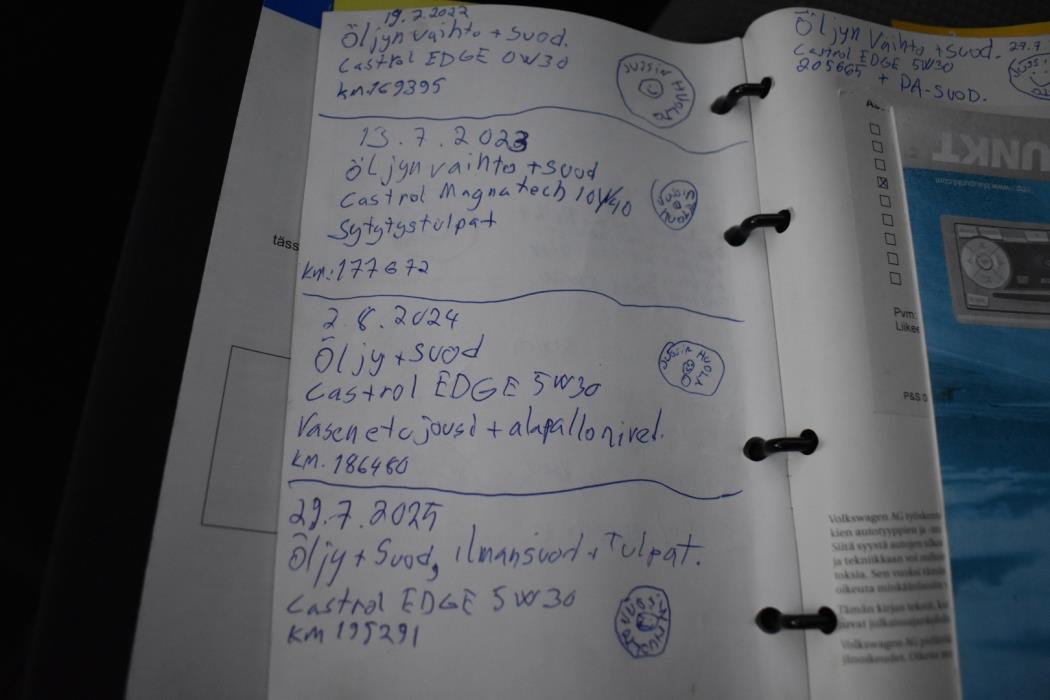 19.7.2022
Öljyn vaihto + suod.
Castrol EDGE 0W30
km.169395
JUSSIN HUOLTO
13.7.2023
Öljyn vaihto + suod
Castrol Magnatech 10W40
Sytytystulpat
km:177672
2.8.2024
Öljy + suod
Castrol EDGE 5W30
JUSSIN HUOLTO
Vasen etujousi + alapallonivel.
km.186480
29.7.2025
Öljy + Suod, ilmansuod + Tulpat.
Castrol EDGE 5W30
km 195291
täss
Öljyn Vaihto + suod.
Castrol EDGE 5W30
205665 + PA-SUOD.
UNKT
Pvm:
Liike
P&S
Volkswagen AG työsken
kien autotyyppien ja
Siitä syystä autojen
ja tekniikkaan voi
toksia. Sen vuoksi
oikeuta minkäänlaisia
Tämän kirjan tekstit,
Volkswagen AG
ilmoikeudet.